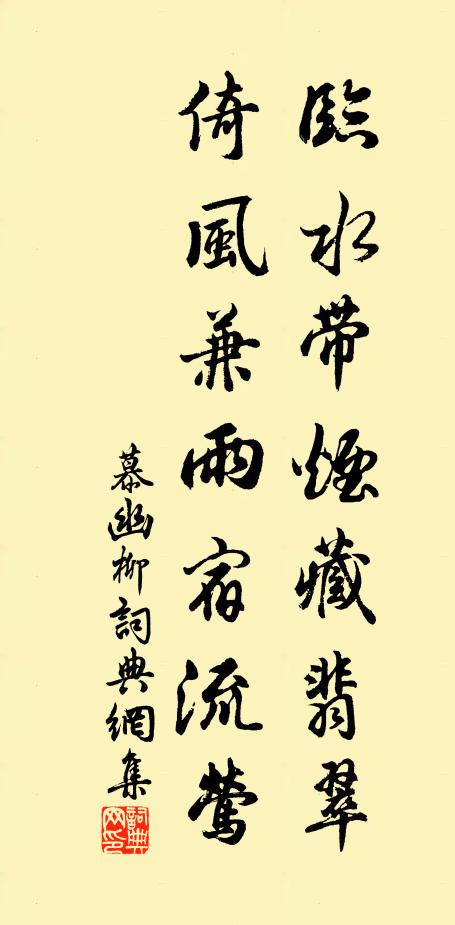 臨水帶煙藏翡翠
倚風兼雨宿流鶯
慕幽柳詞典網集
詞典網印